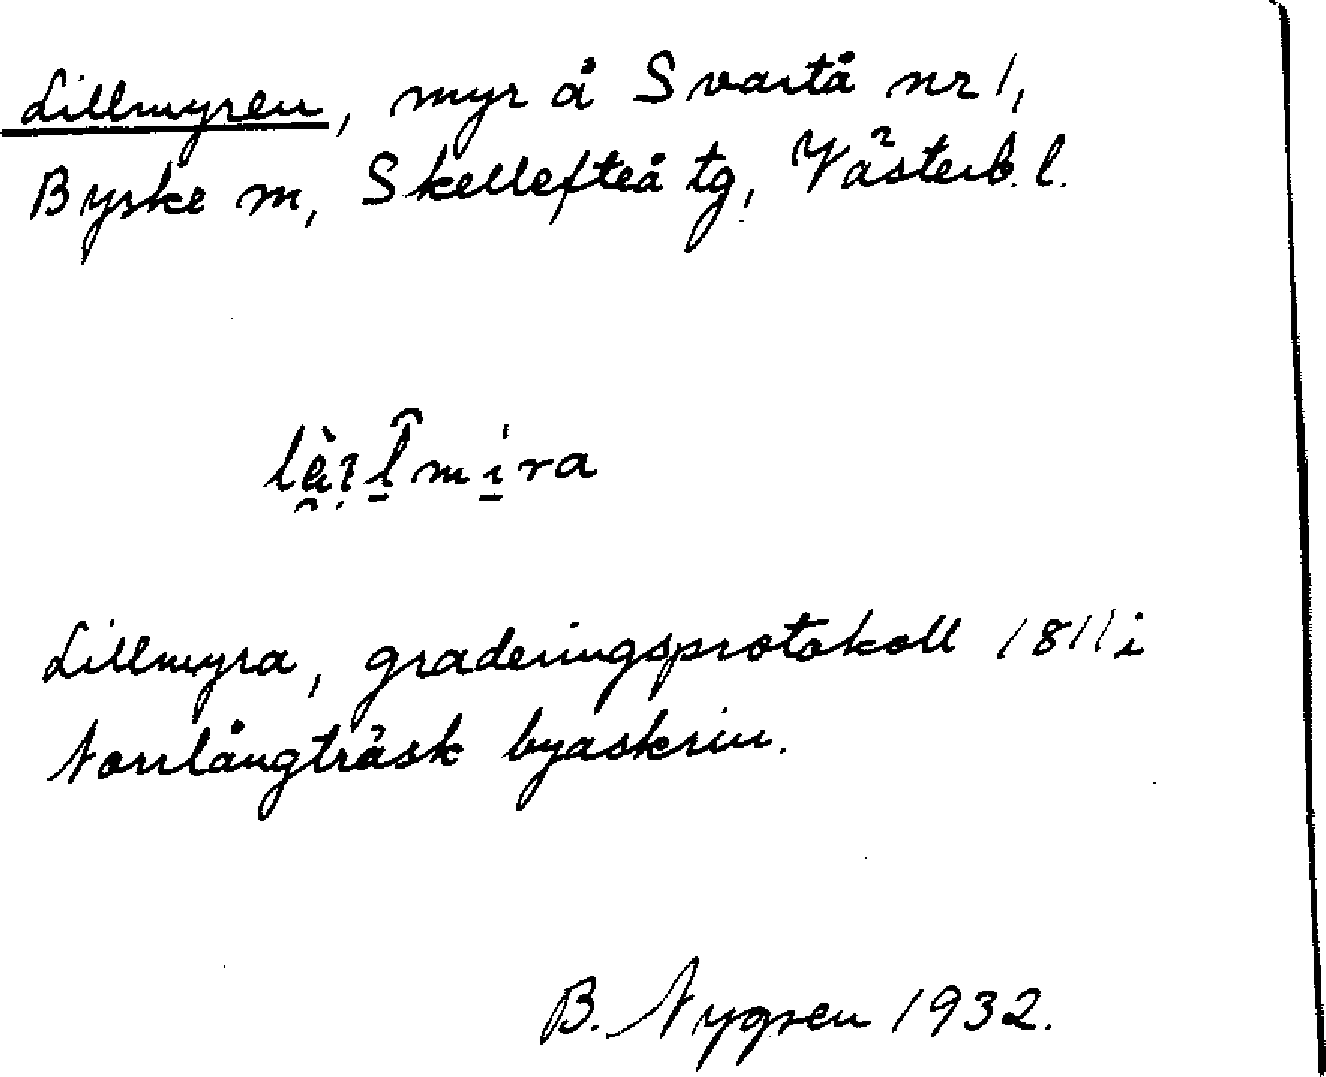 Lillmyren, myr å Svartå nr 1,
Byske sn, Skellefteå tg, Västerb. l.
Lillmyra, graderingsprotokoll 1811 i
Norrlångträsk byaskrin.
B. Nygren 1932.